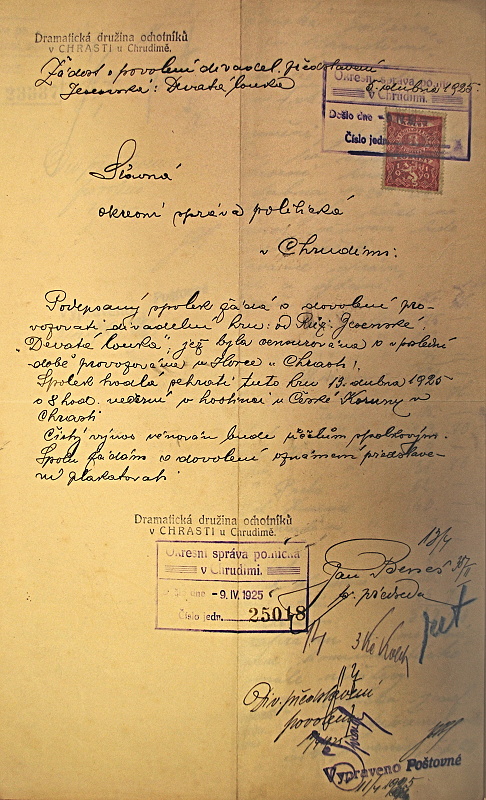 Dramatická družina ochotníků
v CHRASTI u Chrudimě.
Žádost o povolení divadel. představení
Jesenská: Devátá louka
dubna 1925.
Okresní správa politická
v Chrudimi.
Došlo dne
Číslo jedn.
Slavná
okresní správa politická
v Chrudimi.
Podepsaný spolek žádá o dovolení pro-
vozovati divadelní hru: od Růž. Jesenské:
"Devátá louka" jež byla censurována a v poslední
době provozována u Horce u Chrasti.
Spolek hodlá sehráti tuto hru 13. dubna 1925
o 8 hod. v hostinci u České Koruny v
Chrasti
Čistý výnos věnován bude účelům spolkovým.
Spolu žádám o dovolení oznámení představe-
ní plakátovati
Dramatická družina ochotníků
v CHRASTI u Chrudimě.
Okresní správa politická
v Chrudimi.
Došlo dne - 9. IV. 1925
Číslo jedn. 25018
13/4
Jan Beneš
předseda
3 Kč
Div. představení
povoleno
Vypraveno Poštovné
11/4 1925